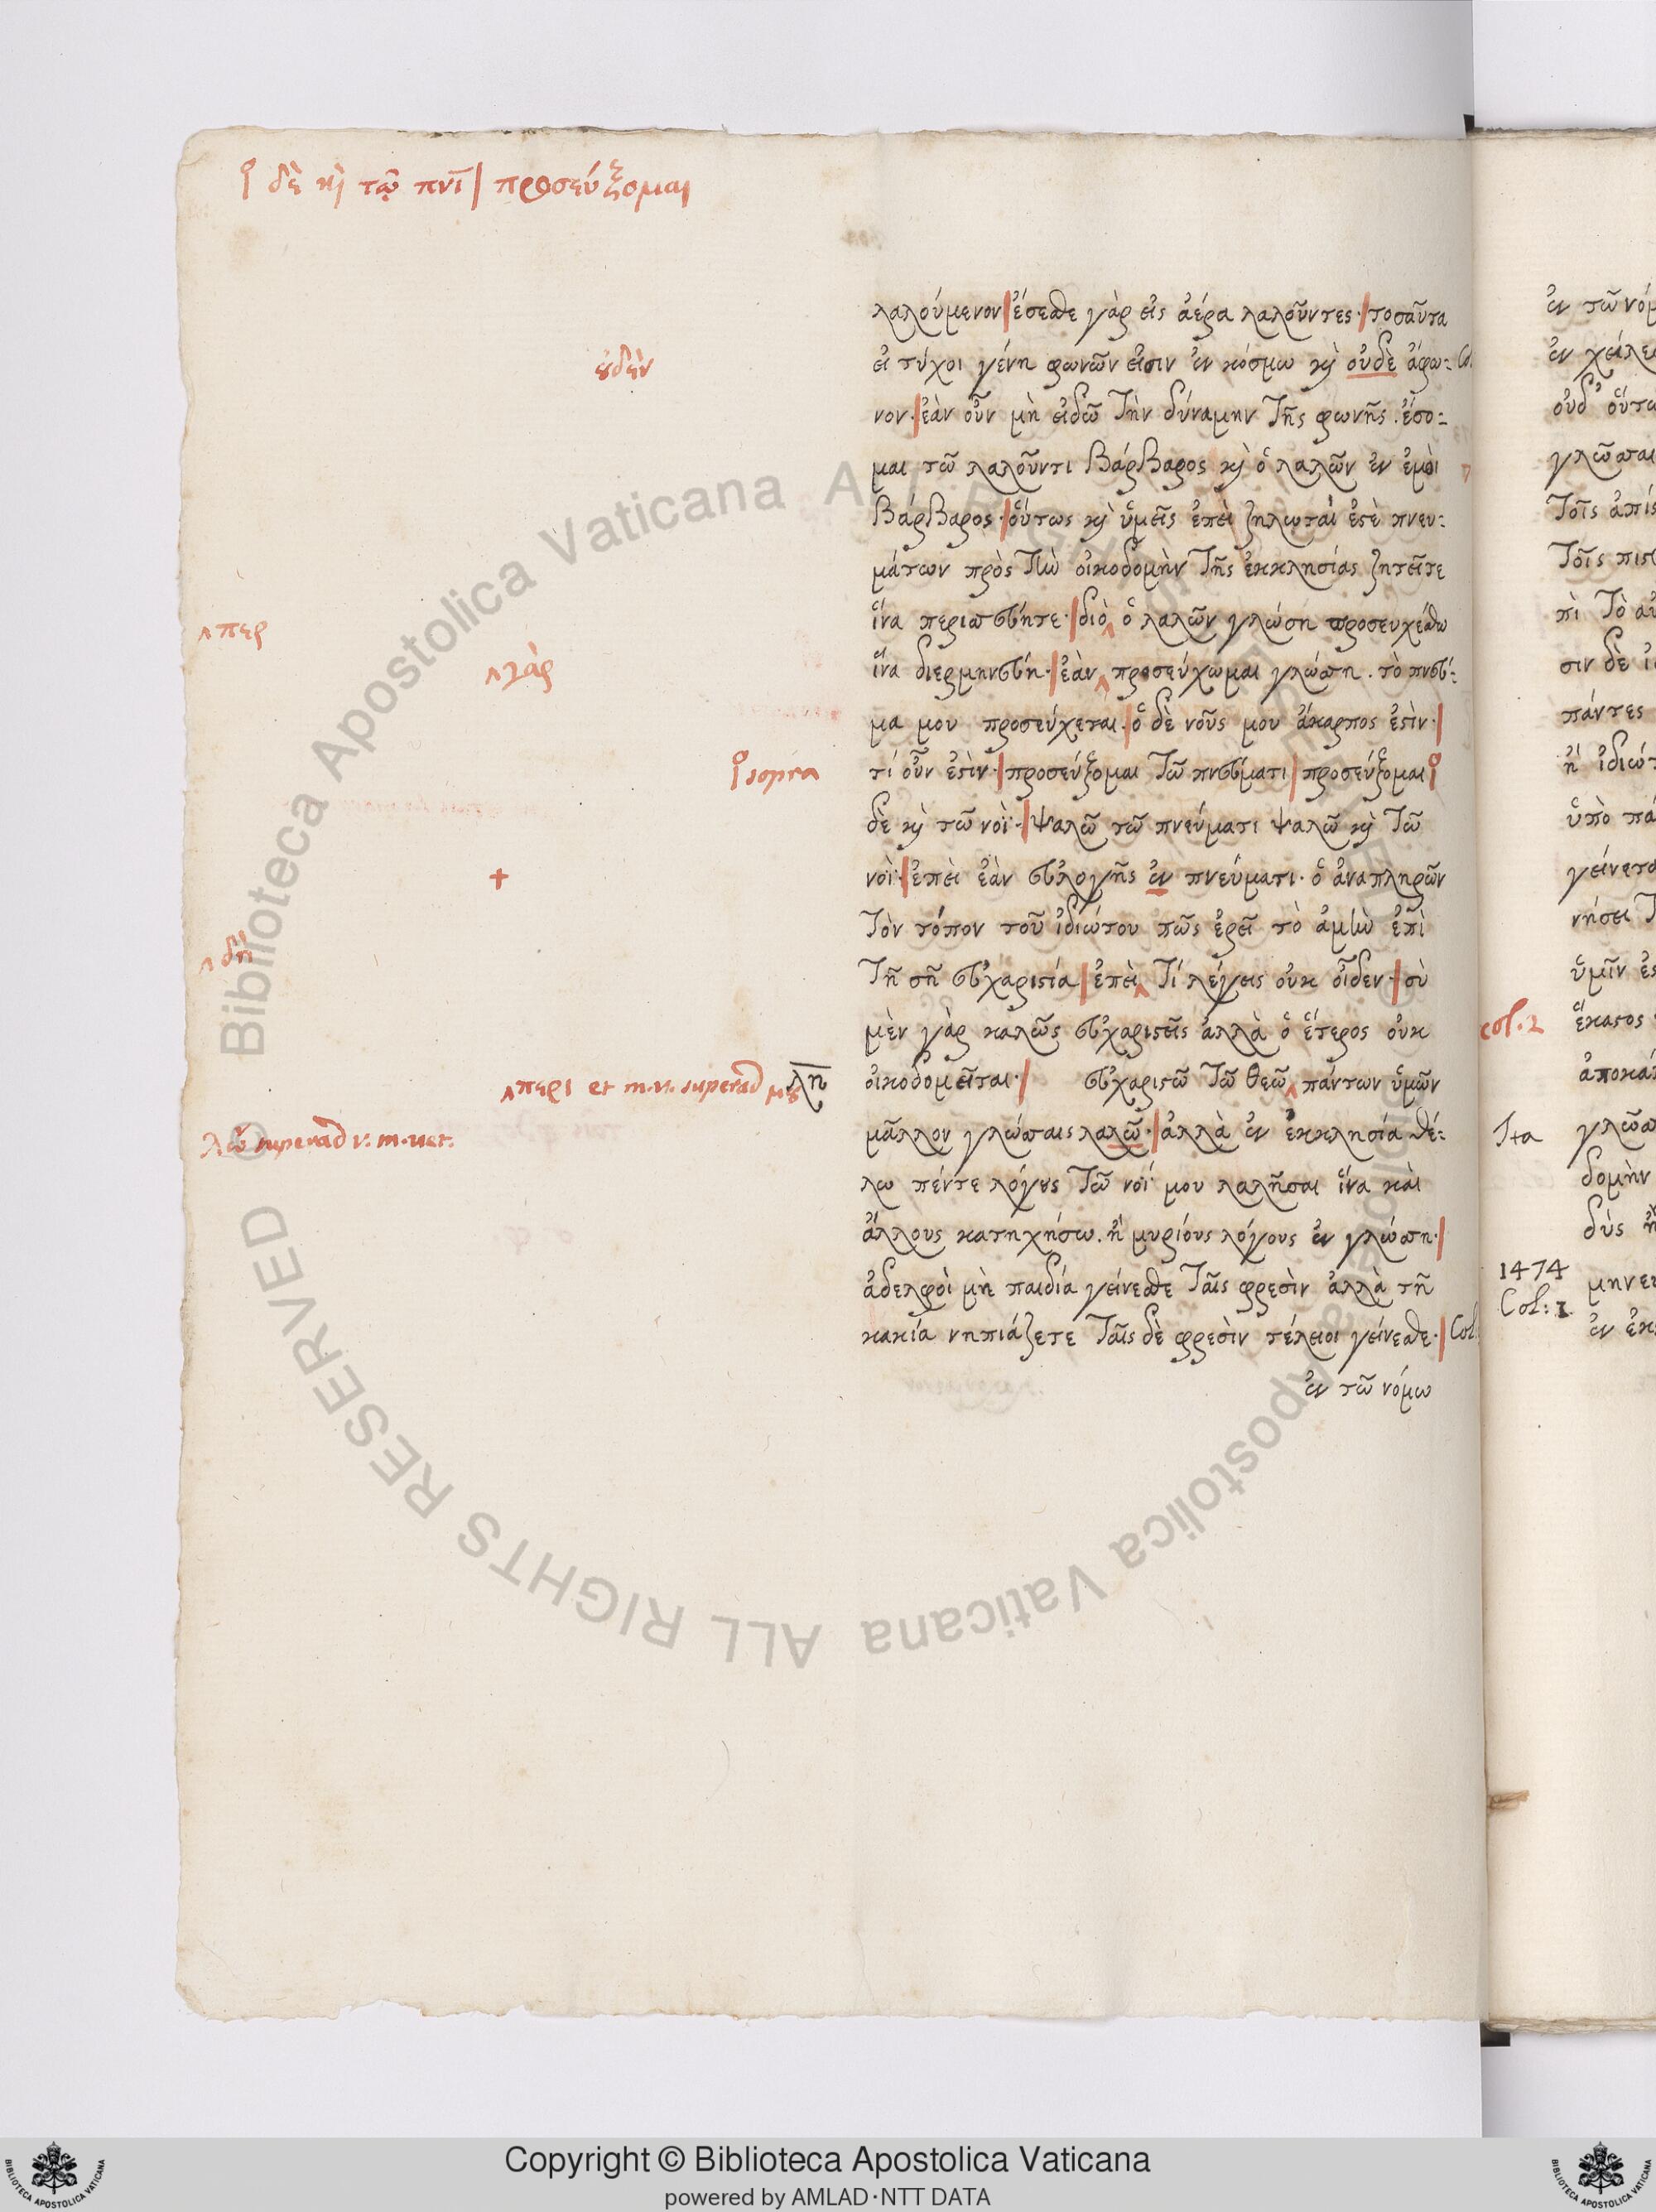 ο δὲ κ τῶ πνῑ | προσεύξομαι
λαλούμενον | ἔσεσθε γὰρ εἰς ἀέρα λαλοῦντες· | τοσαῦτα
ȣδὲν
εἰ τύχοι γένη φωνῶν εἰσιν ἐν κόσμω κ οὐδὲ ἄφω:
νον· | ἐὰν οὖν μὴ εἰδῶ τὴν δύναμην τῆς φωνῆς. ἔσο:
μαι τῶ λαλοῦντι βάρβαρος κ ὁ λαλῶν ἐν ἐμοὶ
βάρβαρος· | οὕτως κ ὑμεῖς ἐπεὶ ζηλωταὶ ἐστὲ πνευ:
μάτων πρὸς τὴν οἰκοδομὴν τῆς ἐκκλησίας ζητεῖτε
^ περ
ἵνα περισσεύητε· | διὸ ^ ὁ λαλῶν γλώσση προσευχέσθω
^ γὰρ
ἵνα διερμηνεύη· | ἐὰν ^ προσεύχωμαι γλώσση. τὸ πνεύ:
μα μου προσεύχεται· | ὁ δὲ νοῦς μου ἄκαρπος ἐστὶν· |
ο sopra
τί οὖν ἐστὶν· | προσεύξομαι τῶ πνεύματι | προσεύξομαι ο
δὲ κ τῶ νοῒ· | ψαλῶ τῶ πνεύματι ψαλῶ κ τῶ
+
νοῒ· | ἐπεὶ ἐὰν εὐλογῆς ἐν πνεύματι· ὁ ἀναπληρῶν
τὸν τόπον τοῦ ἰδιώτου πῶς ἐρεῖ τὸ ἀμὴν ἐπὶ
^ δὴ
τῆ σῆ εὐχαριστία | ἐπεὶ ^ τί λέγεις οὐκ οἶδεν· | σὺ
μὲν γὰρ καλῶς εὐχαριστεῖς ἀλλὰ ὁ ἕτερος οὐκ
^ περι et m. v. superad μȣ
λη
οἰκοδομεῖται· | εὐχαριστῶ τῶ θεῶ ^ πάντων ὑμῶν
λῶ superad v. m. uet.
μᾶλλον γλώσσαις λαλῶ· | ἀλλὰ ἐν ἐκκλησία θέ:
λω πέντε λόγȣς τῶ νοΐ μου λαλῆσαι ἵνα καὶ
ἄλλους κατηχήσω. ἢ μυρίους λόγους ἐν γλώσση· |
ἀδελφοὶ μὴ παιδία γείνεσθε ταῖς φρεσὶν ἀλλὰ τῆ
κακία νηπιάζετε ταῖς δὲ φρεσὶν τέλειοι γείνεσθε· | Col
ἐν τῶ νόμω
ἐν τῶ νόμ
ἐν χείλε
οὐδ' οὕτω
γλῶσσαι
τοῖς ἀπίσ
τοῖς πισ
πὶ τὸ αὐ
σιν δὲ ἰ
πάντες
ἢ ἰδιώτ
ὑπὸ πά
γείνετα
νήσει
ὑμῖν ἐσ
col. 2
ἕκαστος
ἀποκά
Ita
γλῶσσ
δομὴν
δύς ἢ
1474
Col: 1
μηνευ
ἐν ἐκ
Copyright © Biblioteca Apostolica Vaticana
powered by AMLAD·NTT DATA
© Biblioteca Apostolica Vaticana ALL RIGHTS RESERVED